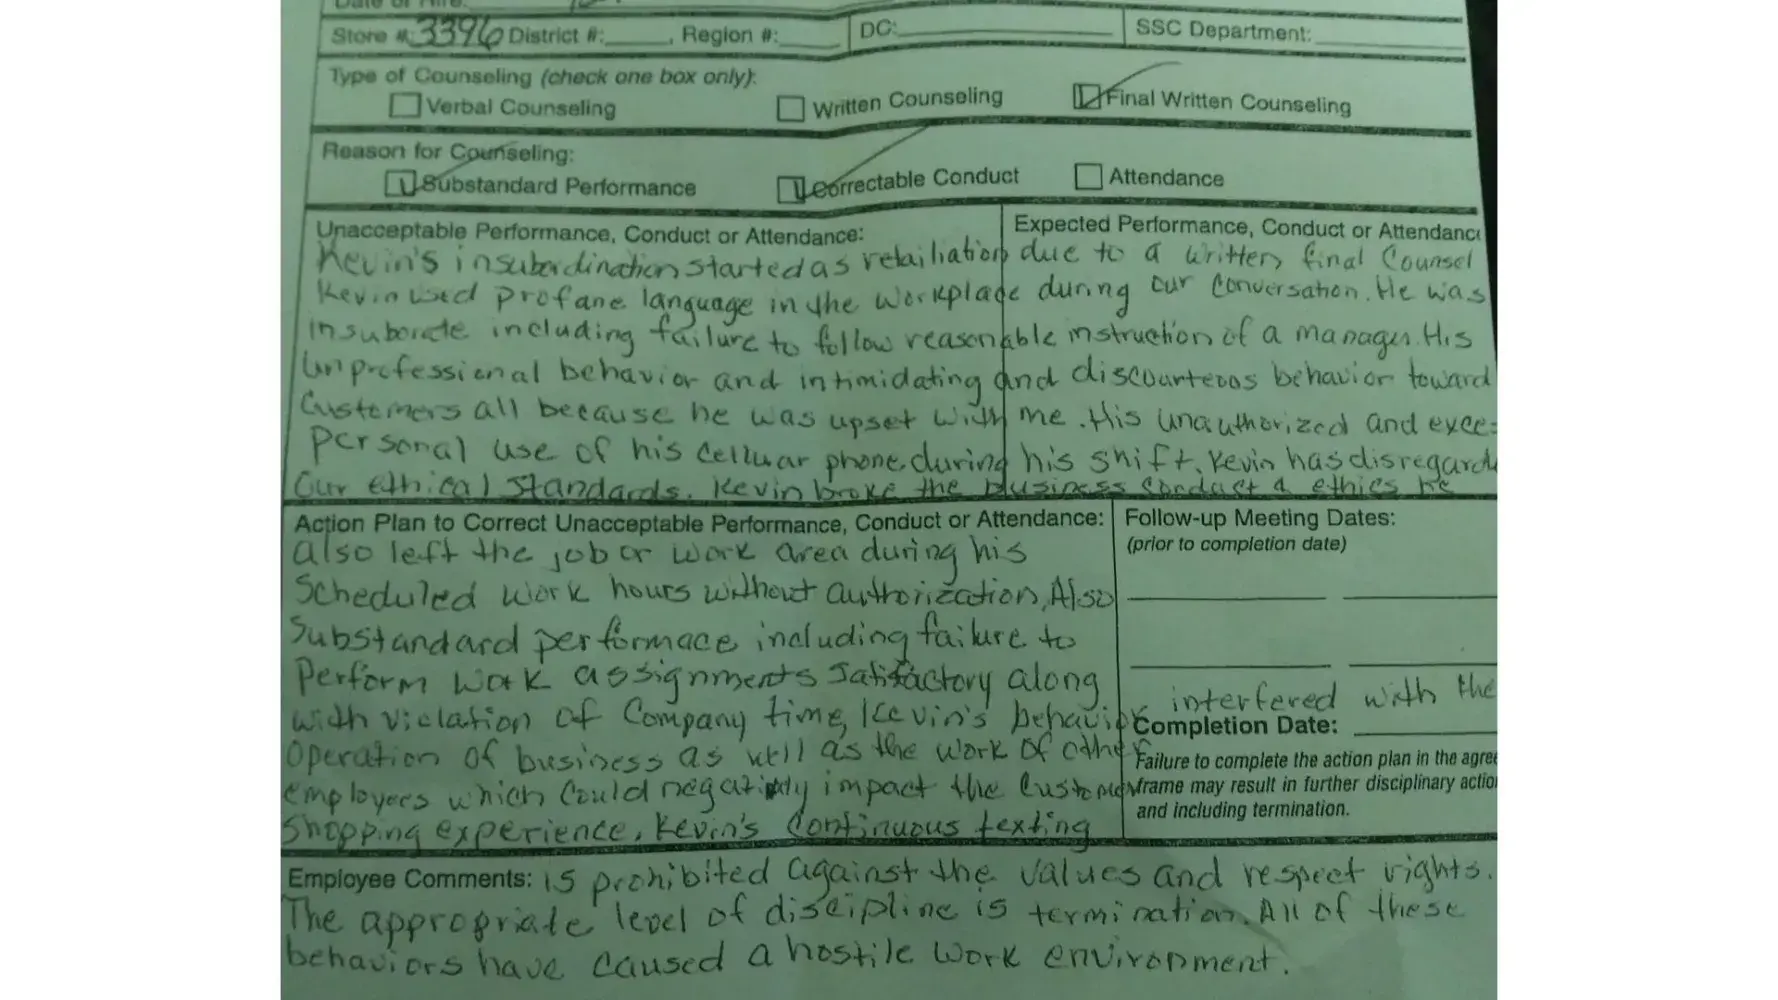 Date of Hire:
Store #: 3396 District #:____, Region #:____ DC:____ SSC Department:____
Type of Counseling (check one box only):
Verbal Counseling Written Counseling Final Written Counseling
Reason for Counseling:
Substandard Performance Correctable Conduct Attendance
Unacceptable Performance, Conduct or Attendance: Expected Performance, Conduct or Attendanc
Kevin's insubordination started as retailiation due to a written final Counsel
Kevin used profane language in the workplace during our Conversation. He was
insuborate including failure to follow reasonable instruction of a manager. His
Unprofessional behavior and intimidating and discourteous behavior toward
Customers all because he was upset with me. His Unauthorized and exce
personal use of his Celluar phone during his shift. Kevin has disregard
Our ethical Standards. Kevin broke the business conduct & ethics he
Action Plan to Correct Unacceptable Performance, Conduct or Attendance: Follow-up Meeting Dates:
(prior to completion date)
also left the job or work area during his
Scheduled work hours without authorization, Also
Substandard performace including failure to
Perform work assignments Satisfactory along
with violation of Company time, Kevin's behavior interfered with the
Completion Date:
Operation of business as well as the work of other
employees which could negatively impact the Customer
Shopping experience. Kevin's Continuous texting
Failure to complete the action plan in the agree
frame may result in further disciplinary actio
and including termination.
Employee Comments: is prohibited against the values and respect rights.
The appropriate level of discipline is termination. All of these
behaviors have caused a hostile work environment.